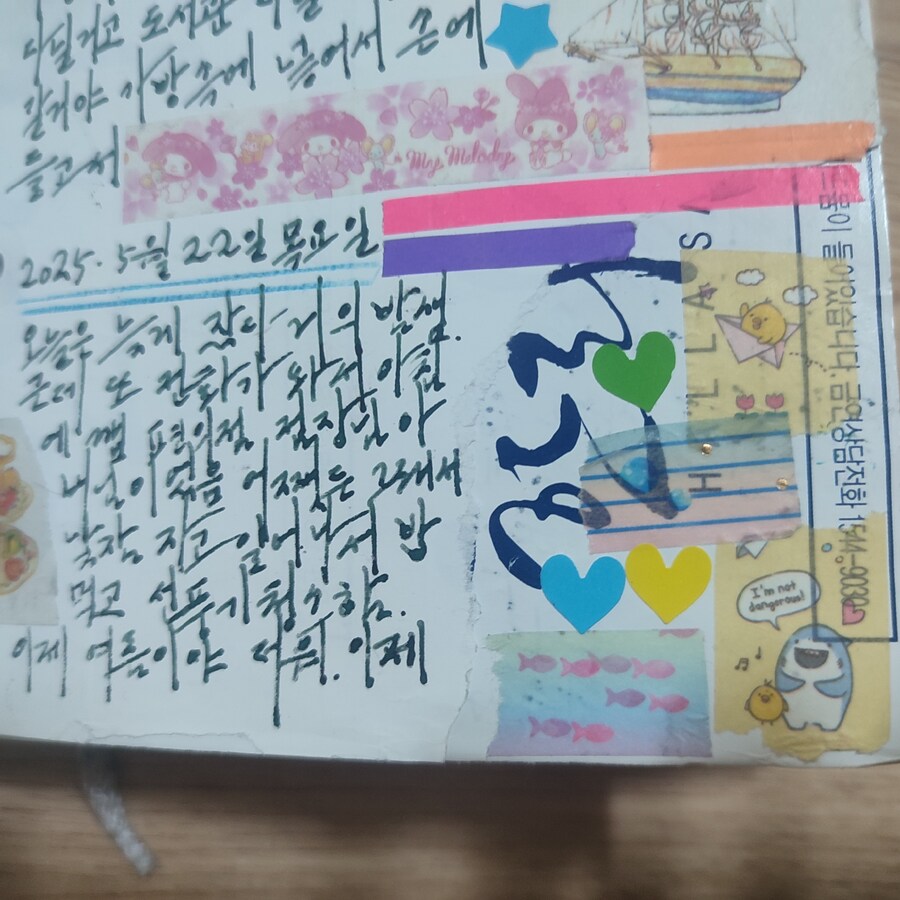 다닐거고 도서관
갈거야 가방속에 넣어서 손에
들고서
My Melody
2025. 5월 22일 목요일
오늘은 늦게 잤다 거의 밤샘.
근데 또 전화가 와서 아침
에 깸 편의점 점장님 아
니넘이 었음 어쨌든 그래서
낮잠 자고 일어나서 밥
먹고 선풍기 청소함.
이제 여름이야 더워. 이제
들어있습니다.
전화 1544-9030
HILLA
S
I'm not
dangerous!